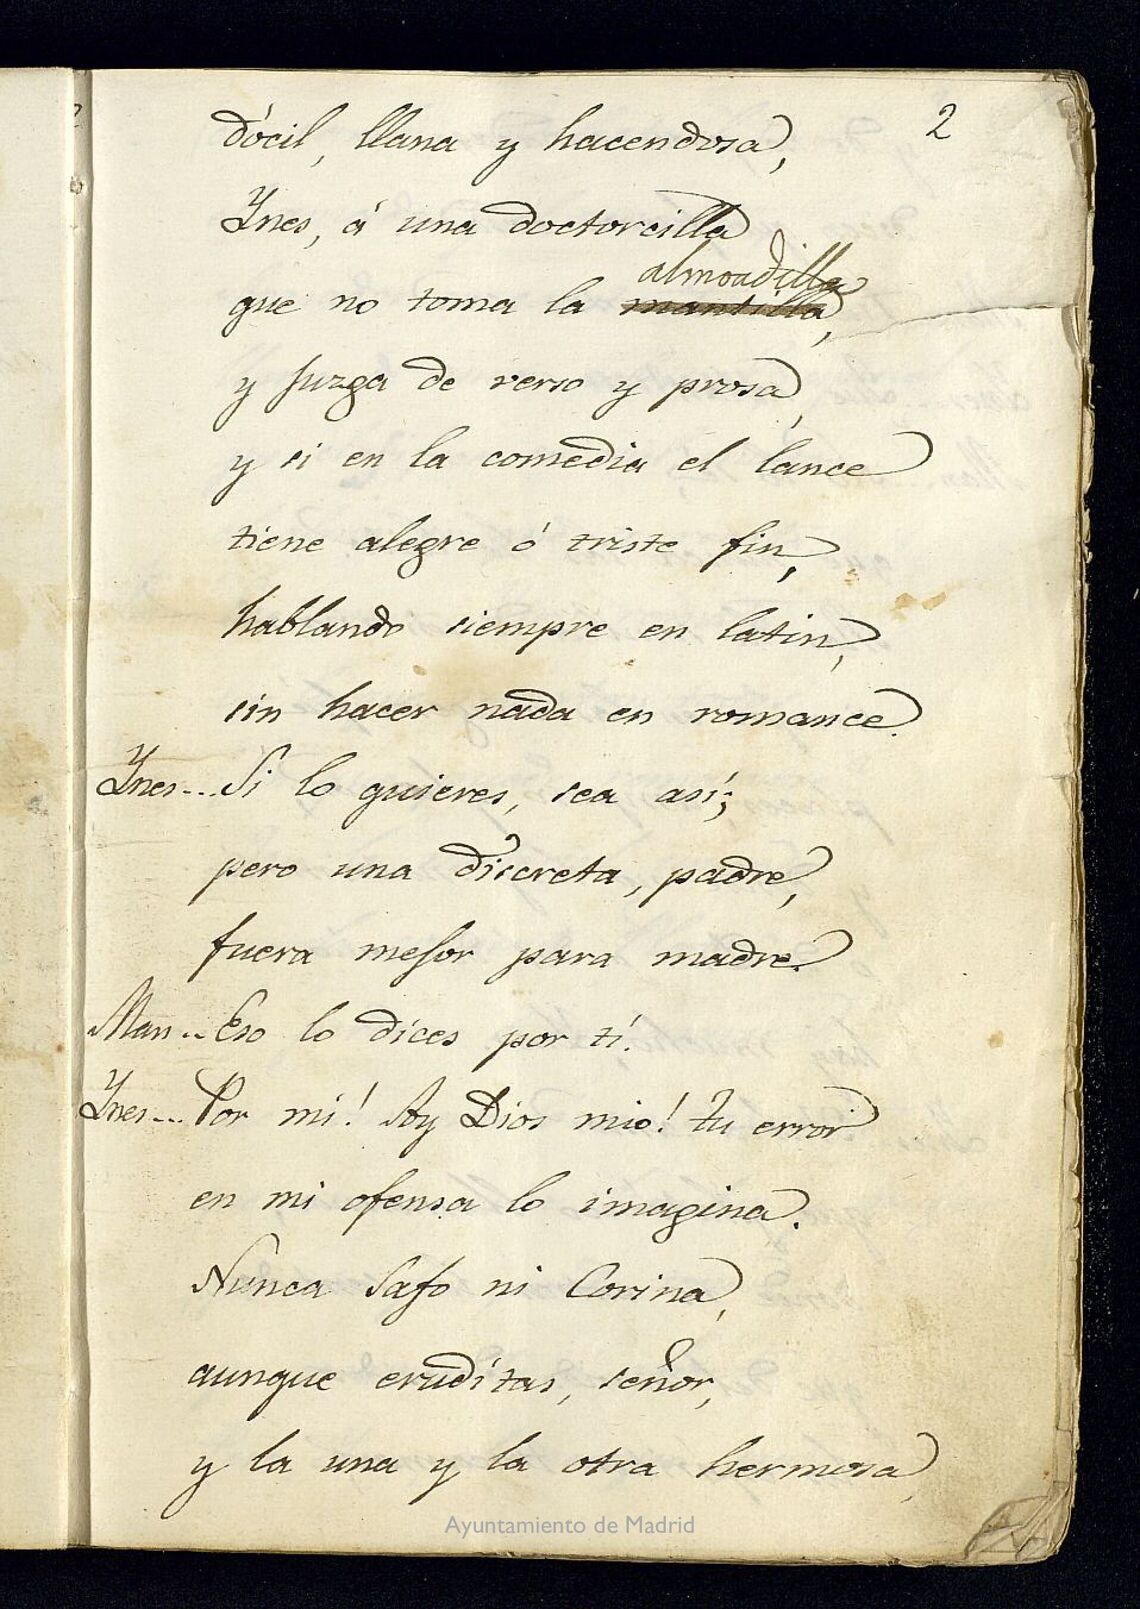 2
dócil, llana y hacendosa,
Ynes, á una doctorcilla
almoadilla
que no toma la mantilla,
y juzga de verso y prosa,
y si en la comedia el lance
tiene alegre ó triste fin,
hablando siempre en latin,
sin hacer nada en romance.
Ynes... Si lo quieres, sea así;
pero una discreta, padre,
fuera mejor para madre.
Man... Eso lo dices por tí.
Ynes... Por mi! Ay Dios mio! tu error
en mi ofensa lo imagina.
Nunca Safo ni Corina,
aunque eruditas, señor,
y la una y la otra hermosa,
Ayuntamiento de Madrid